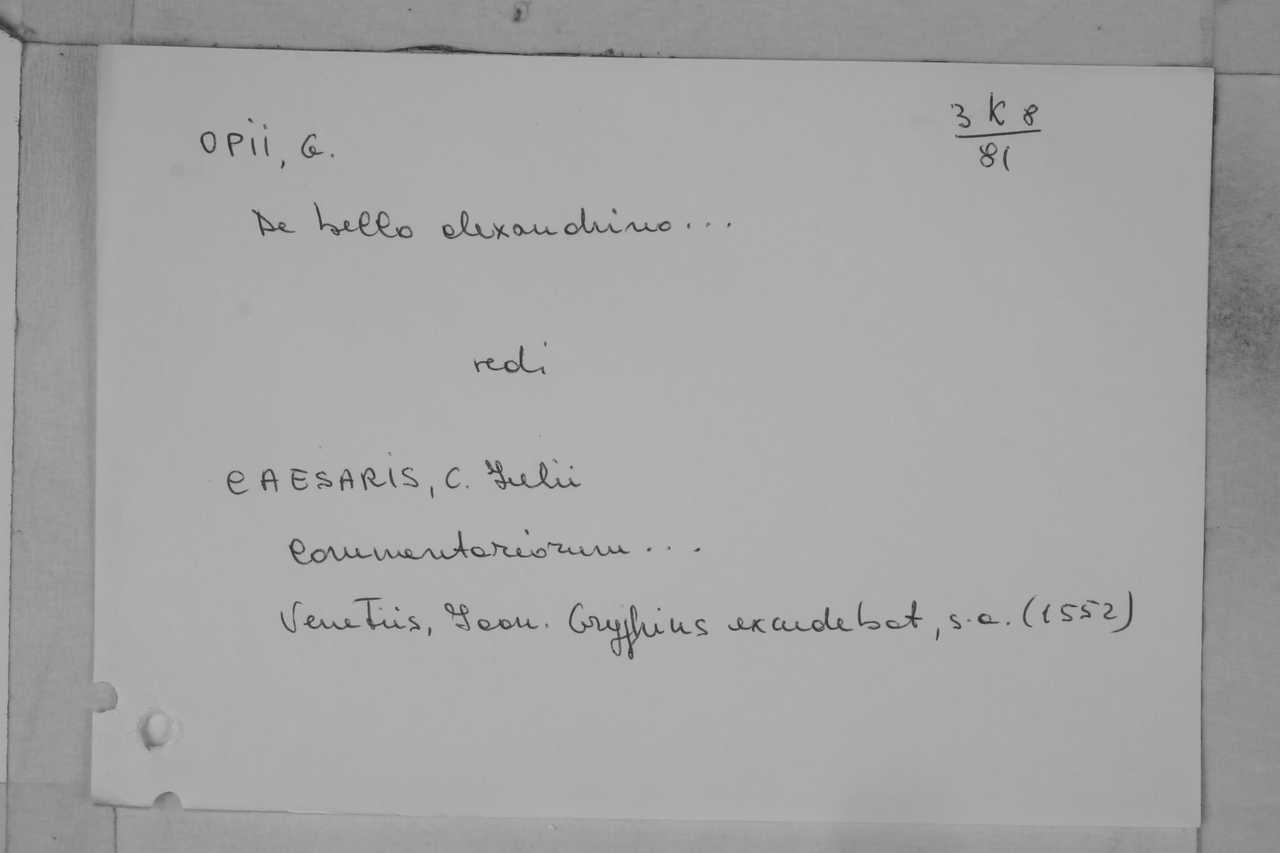 OPII, G.
3 K 8
81
De bello alexandrino...
redi
CAESARIS, C. Julii
Commentariorum...
Venetiis, Joan. Gryphius excudebat, s.a. (1552)